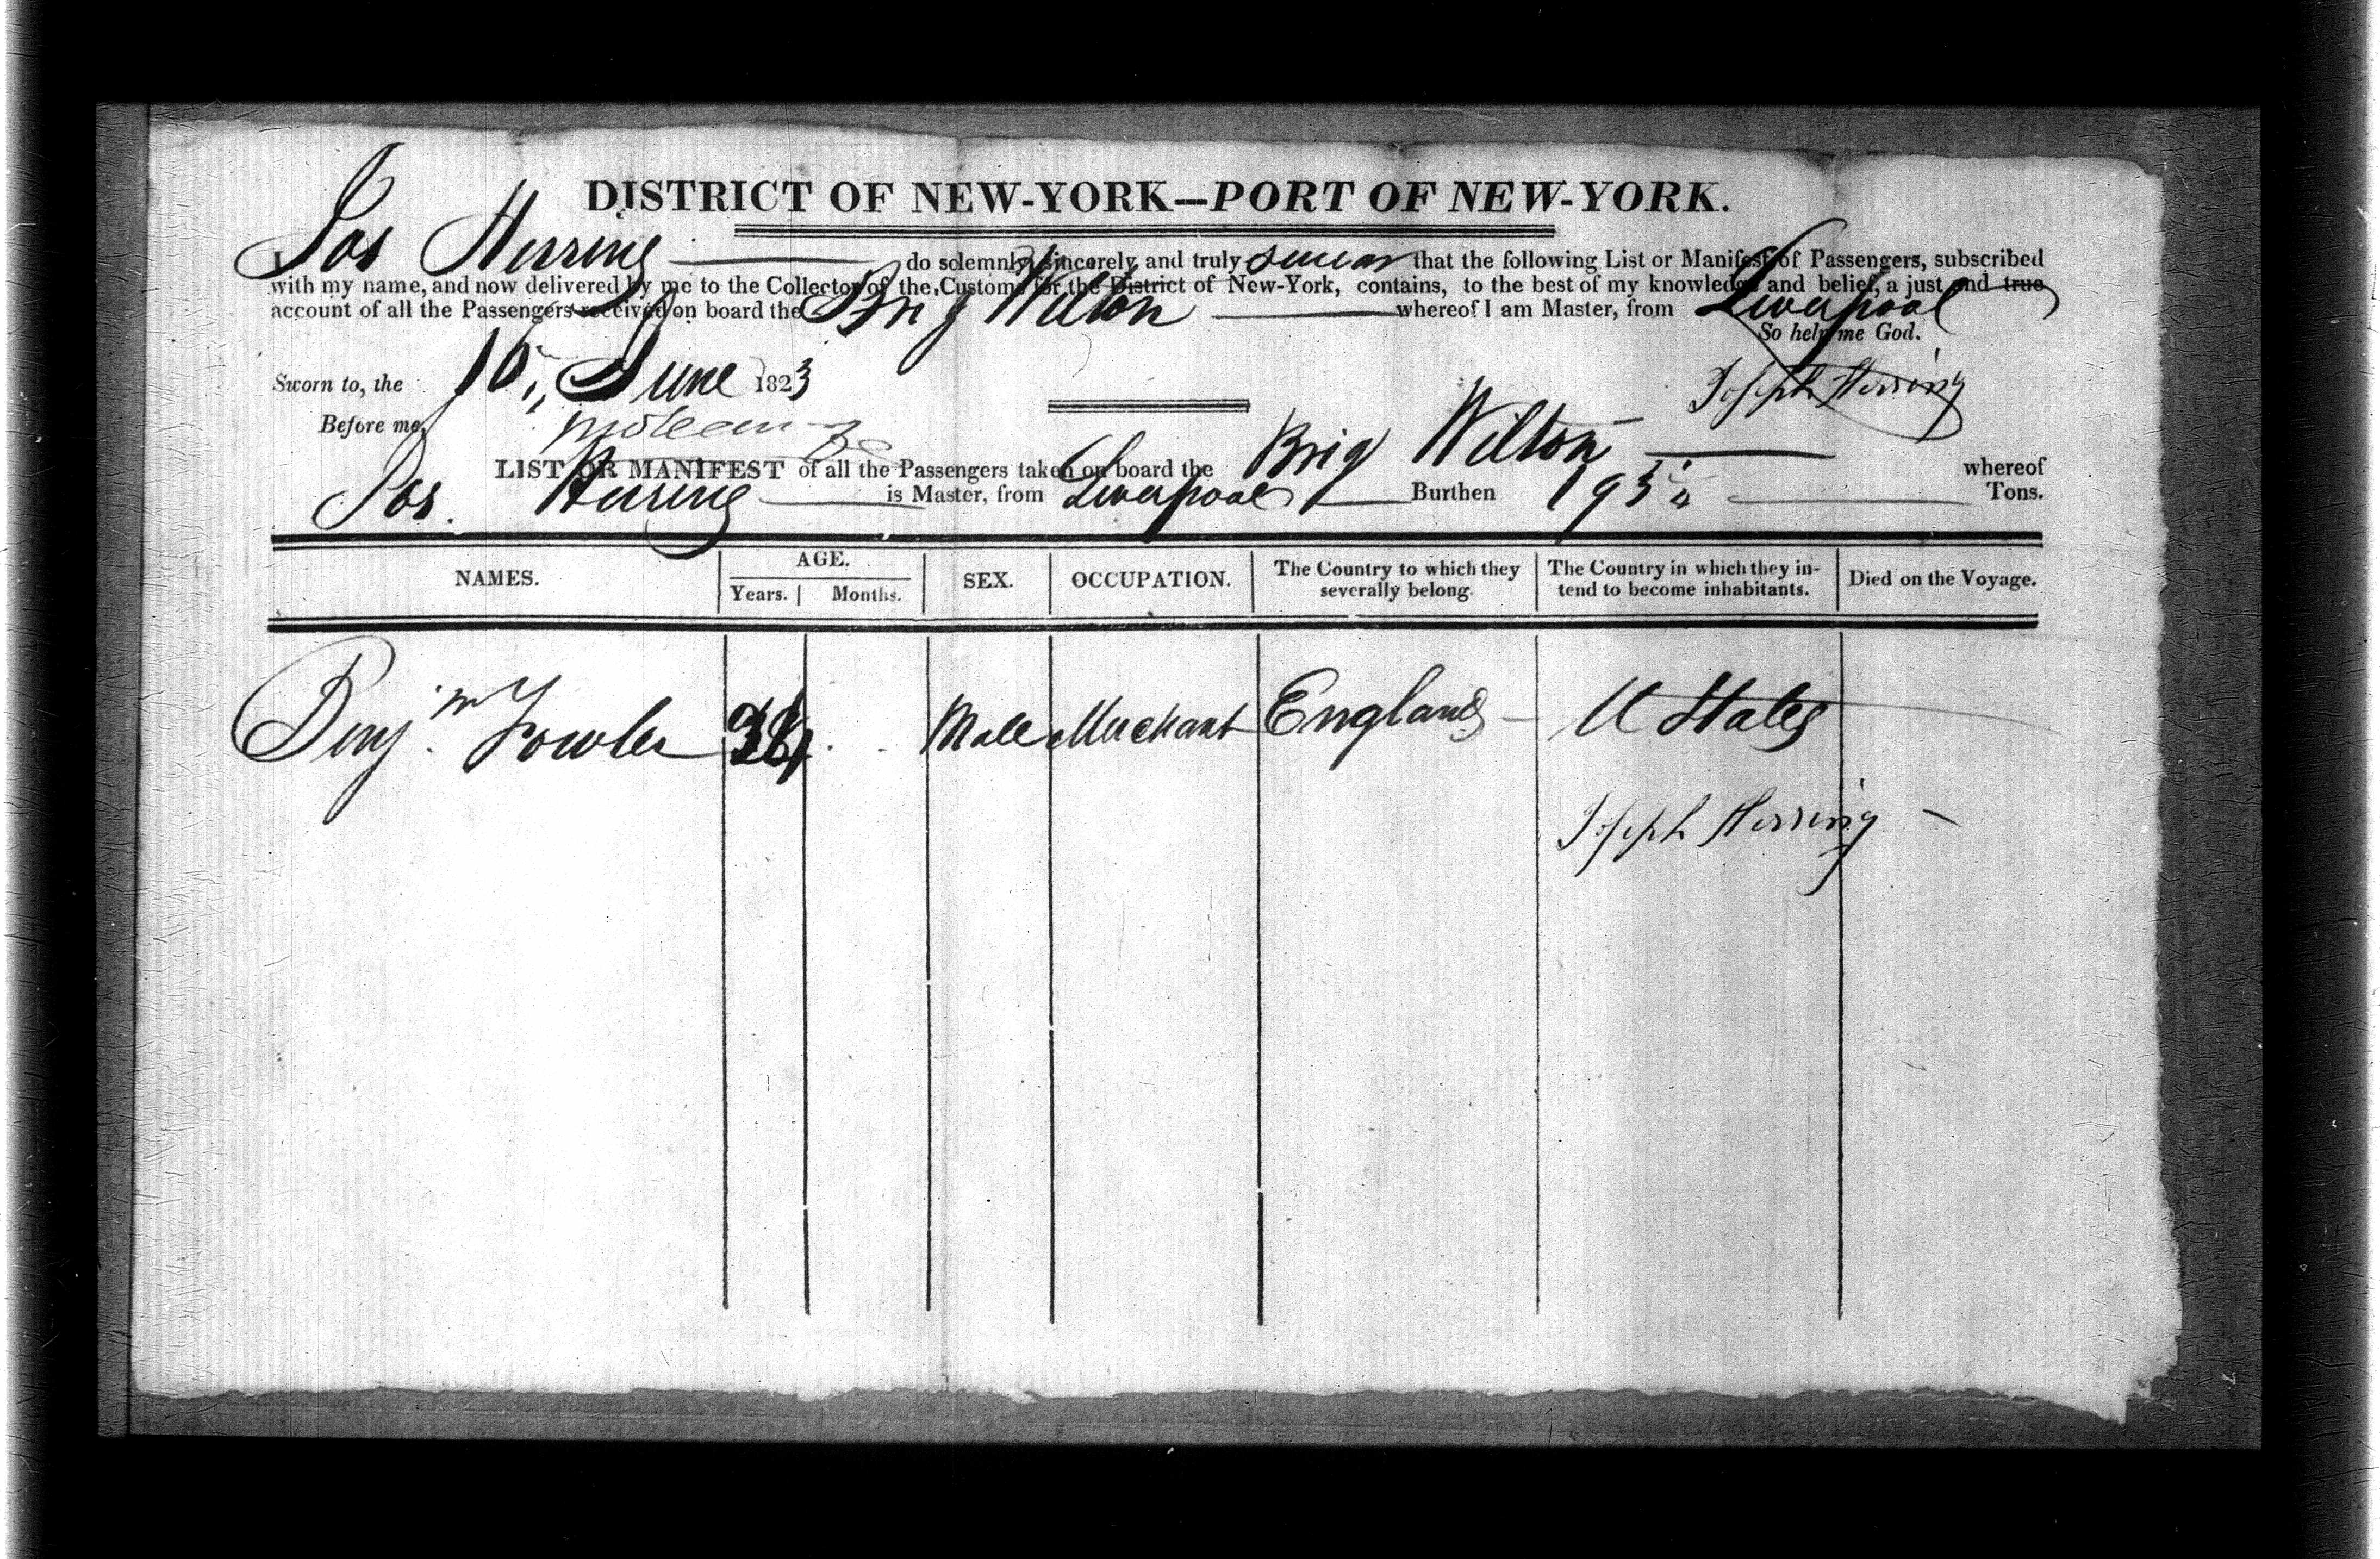 DISTRICT OF NEW-YORK—PORT OF NEW-YORK.
I Jos Herring do solemnly, sincerely, and truly swear that the following List or Manifest of Passengers, subscribed
with my name, and now delivered by me to the Collector of the Customs for the District of New-York, contains, to the best of my knowledge and belief, a just and true
account of all the Passengers received on board the Brig Wilton whereof I am Master, from Liverpool
So help me God.
Sworn to, the 16, June 1823
Joseph Herring
Before me,
LIST OR MANIFEST of all the Passengers taken on board the Brig Wilton whereof
Jos. Herring is Master, from Liverpool Burthen Tons.
NAMES. AGE. Years. Months. SEX. OCCUPATION. The Country to which they severally belong. The Country in which they intend to become inhabitants. Died on the Voyage.
Benj.m Fowler Male Merchant England U States
Joseph Herring